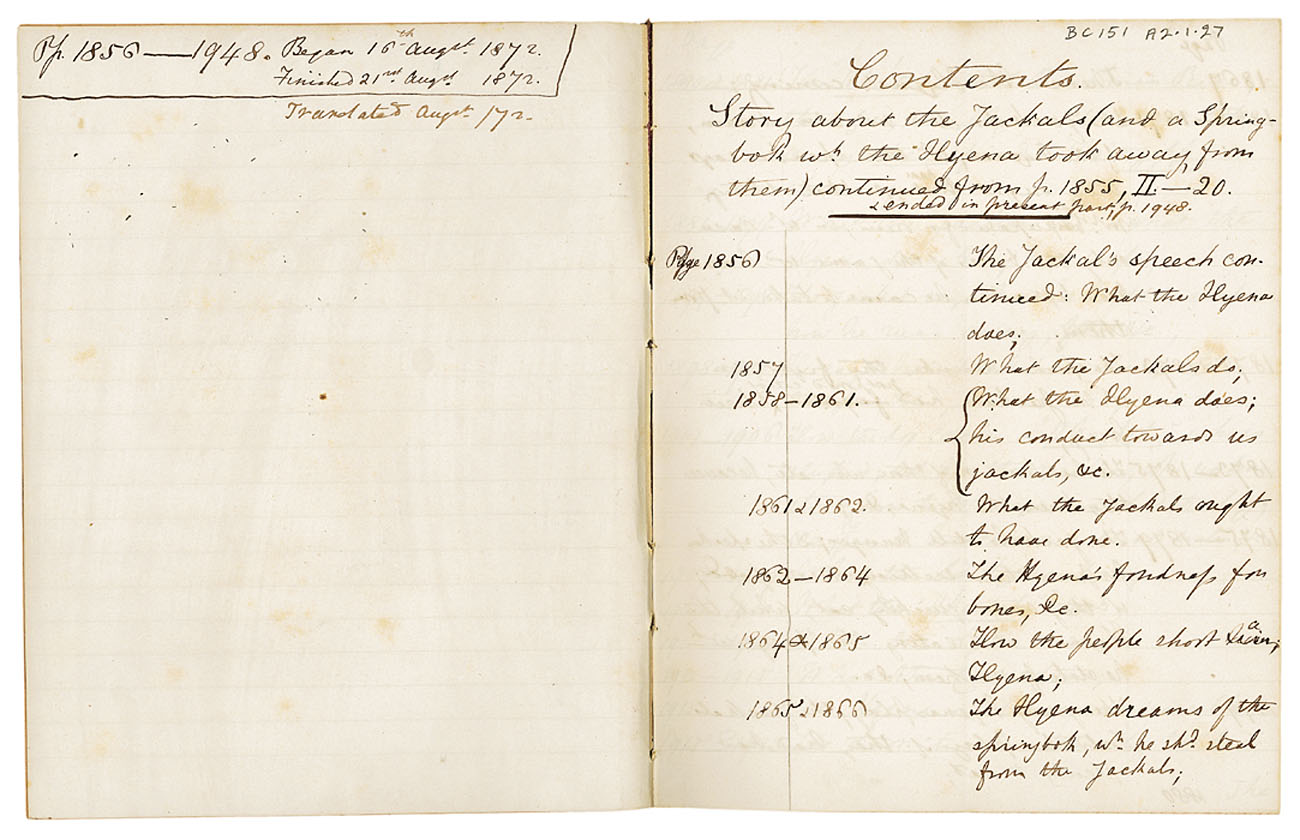 Pp. 1856 — 1948. Began 16th Augst. 1872.
Finished 21st Augst 1872.
Translated Augst /72.
BC151 A2.1.27
Contents.
Story about the Jackals (and a Spring-
bok wh. the Hyena took away from
them) continued from p. 1855, II. — 20.
& ended in present part, p. 1948.
Page 1856 The Jackal's speech con-
tinued: What the Hyena
does;
1857 What the Jackals do;
1858 – 1861. What the Hyena does;
his conduct towards us
jackals, &c.
1861 & 1862. What the Jackals ought
to have done.
1862 – 1864 The Hyena's fondness for
bones, &c.
1864 & 1865 How the people shoot a
Hyena;
1865 & 1866 The Hyena dreams of the
springbok, wh. he shd. steal
from the Jackals;